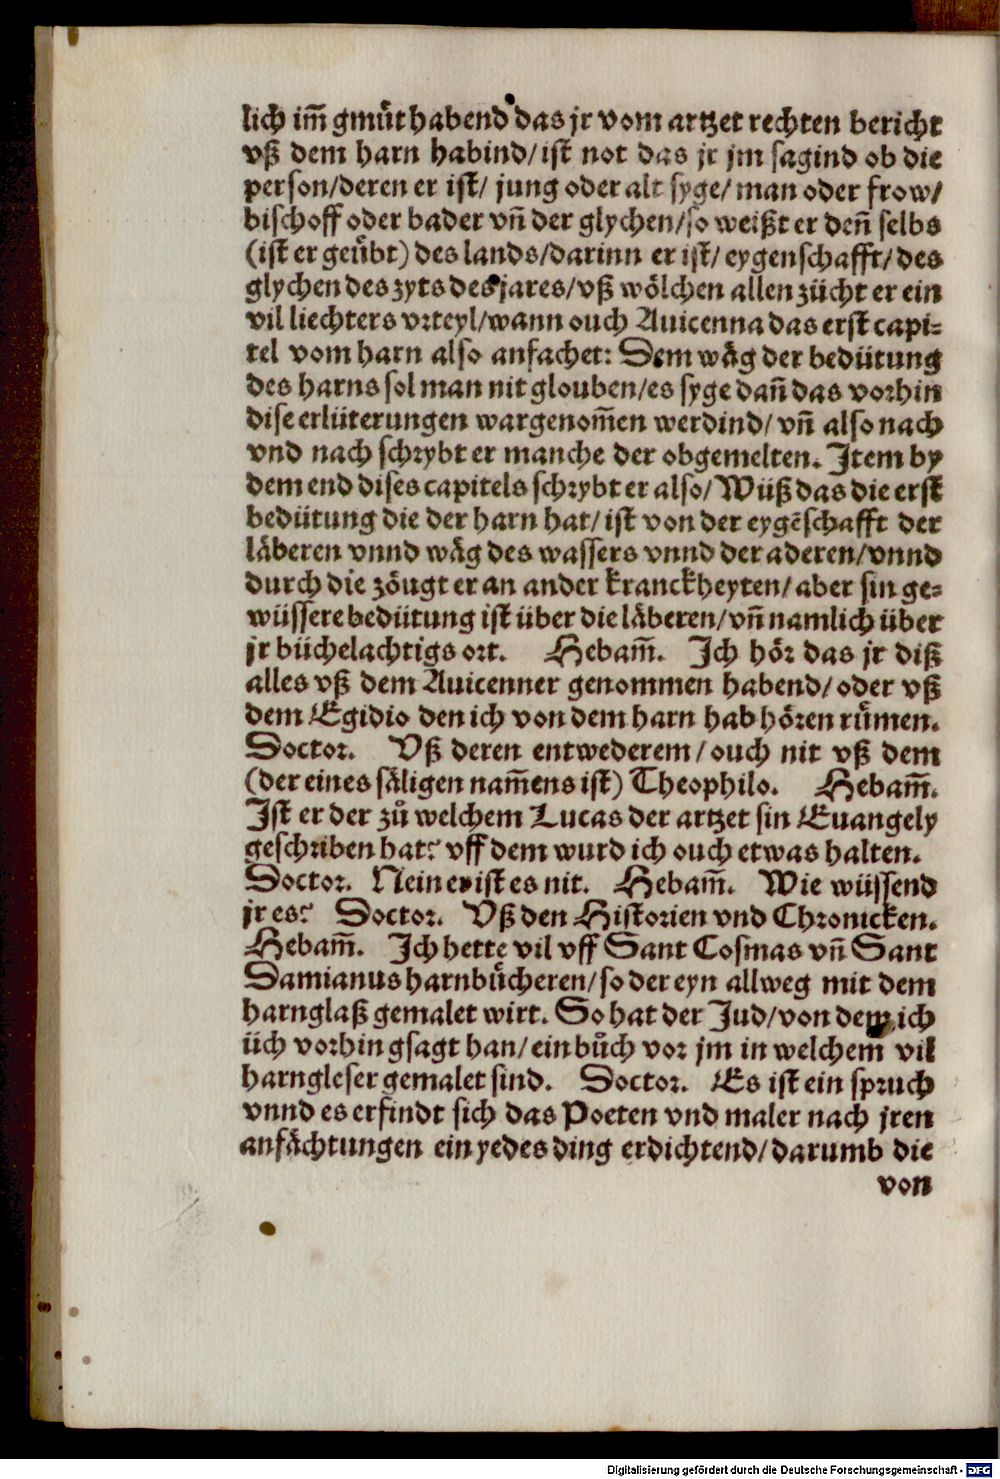 lich im̄ gmuͤt habend das jr vom artzet rechten bericht
vß dem harn habind/ ist not das jr jm sagind ob die
person/deren er ist/ jung oder alt syge/ man oder frow/
bischoff oder bader vn̄ der glychen/so weißt er den̄ selbs
(ist er geuͤbt) des lands/darinn er ist/ eygenschafft/ des
glychen des zyts des jares/ vß woͤlchen allen zücht er ein
vil liechters vrteyl/wann ouch Auicenna das erst capi-
tel vom harn also anfachet: Dem waͤg der bedütung
des harns sol man nit glouben/es syge dan̄ das vorhin
dise erlüterungen wargenom̄en werdind/ vn̄ also nach
vnd nach schrybt er manche der obgemelten. Item by
dem end dises capitels schrybt er also/ Wüß das die erst
bedütung die der harn hat/ ist von der eygēschafft der
laͤberen vnnd waͤg des wassers vnnd der aderen/vnnd
durch die zoͤugt er an ander kranckheyten/ aber sin ge-
wüssere bedütung ist über die laͤberen/ vn̄ namlich über
jr büchelachtigs ort. Hebam̄. Ich hoͤr das jr diß
alles vß dem Auicenner genommen habend/ oder vß
dem Egidio den ich von dem harn hab hoͤren ruͤmen.
Doctor. Vß deren entwederem/ ouch nit vß dem
(der eines saͤligen nam̄ens ist) Theophilo. Hebam̄.
Ist er der zuͦ welchem Lucas der artzet sin Euangely
geschriben hat? vff dem wurd ich ouch etwas halten.
Doctor. Nein er ist es nit. Hebam̄. Wie wüssend
jr es? Doctor. Vß den Historien vnd Chronicken.
Hebam̄. Ich hette vil vff Sant Cosmas vn̄ Sant
Damianus harnbuͤcheren/ so der eyn allweg mit dem
harnglaß gemalet wirt. So hat der Jud/ von dem ich
üch vorhin gsagt han/ ein buͦch vor jm in welchem vil
harngleser gemalet sind. Doctor. Es ist ein spruch
vnnd es erfindt sich das Poeten vnd maler nach jren
anfaͤchtungen ein yedes ding erdichtend/ darumb die
von
Digitalisierung gefördert durch die Deutsche Forschungsgemeinschaft - DFG